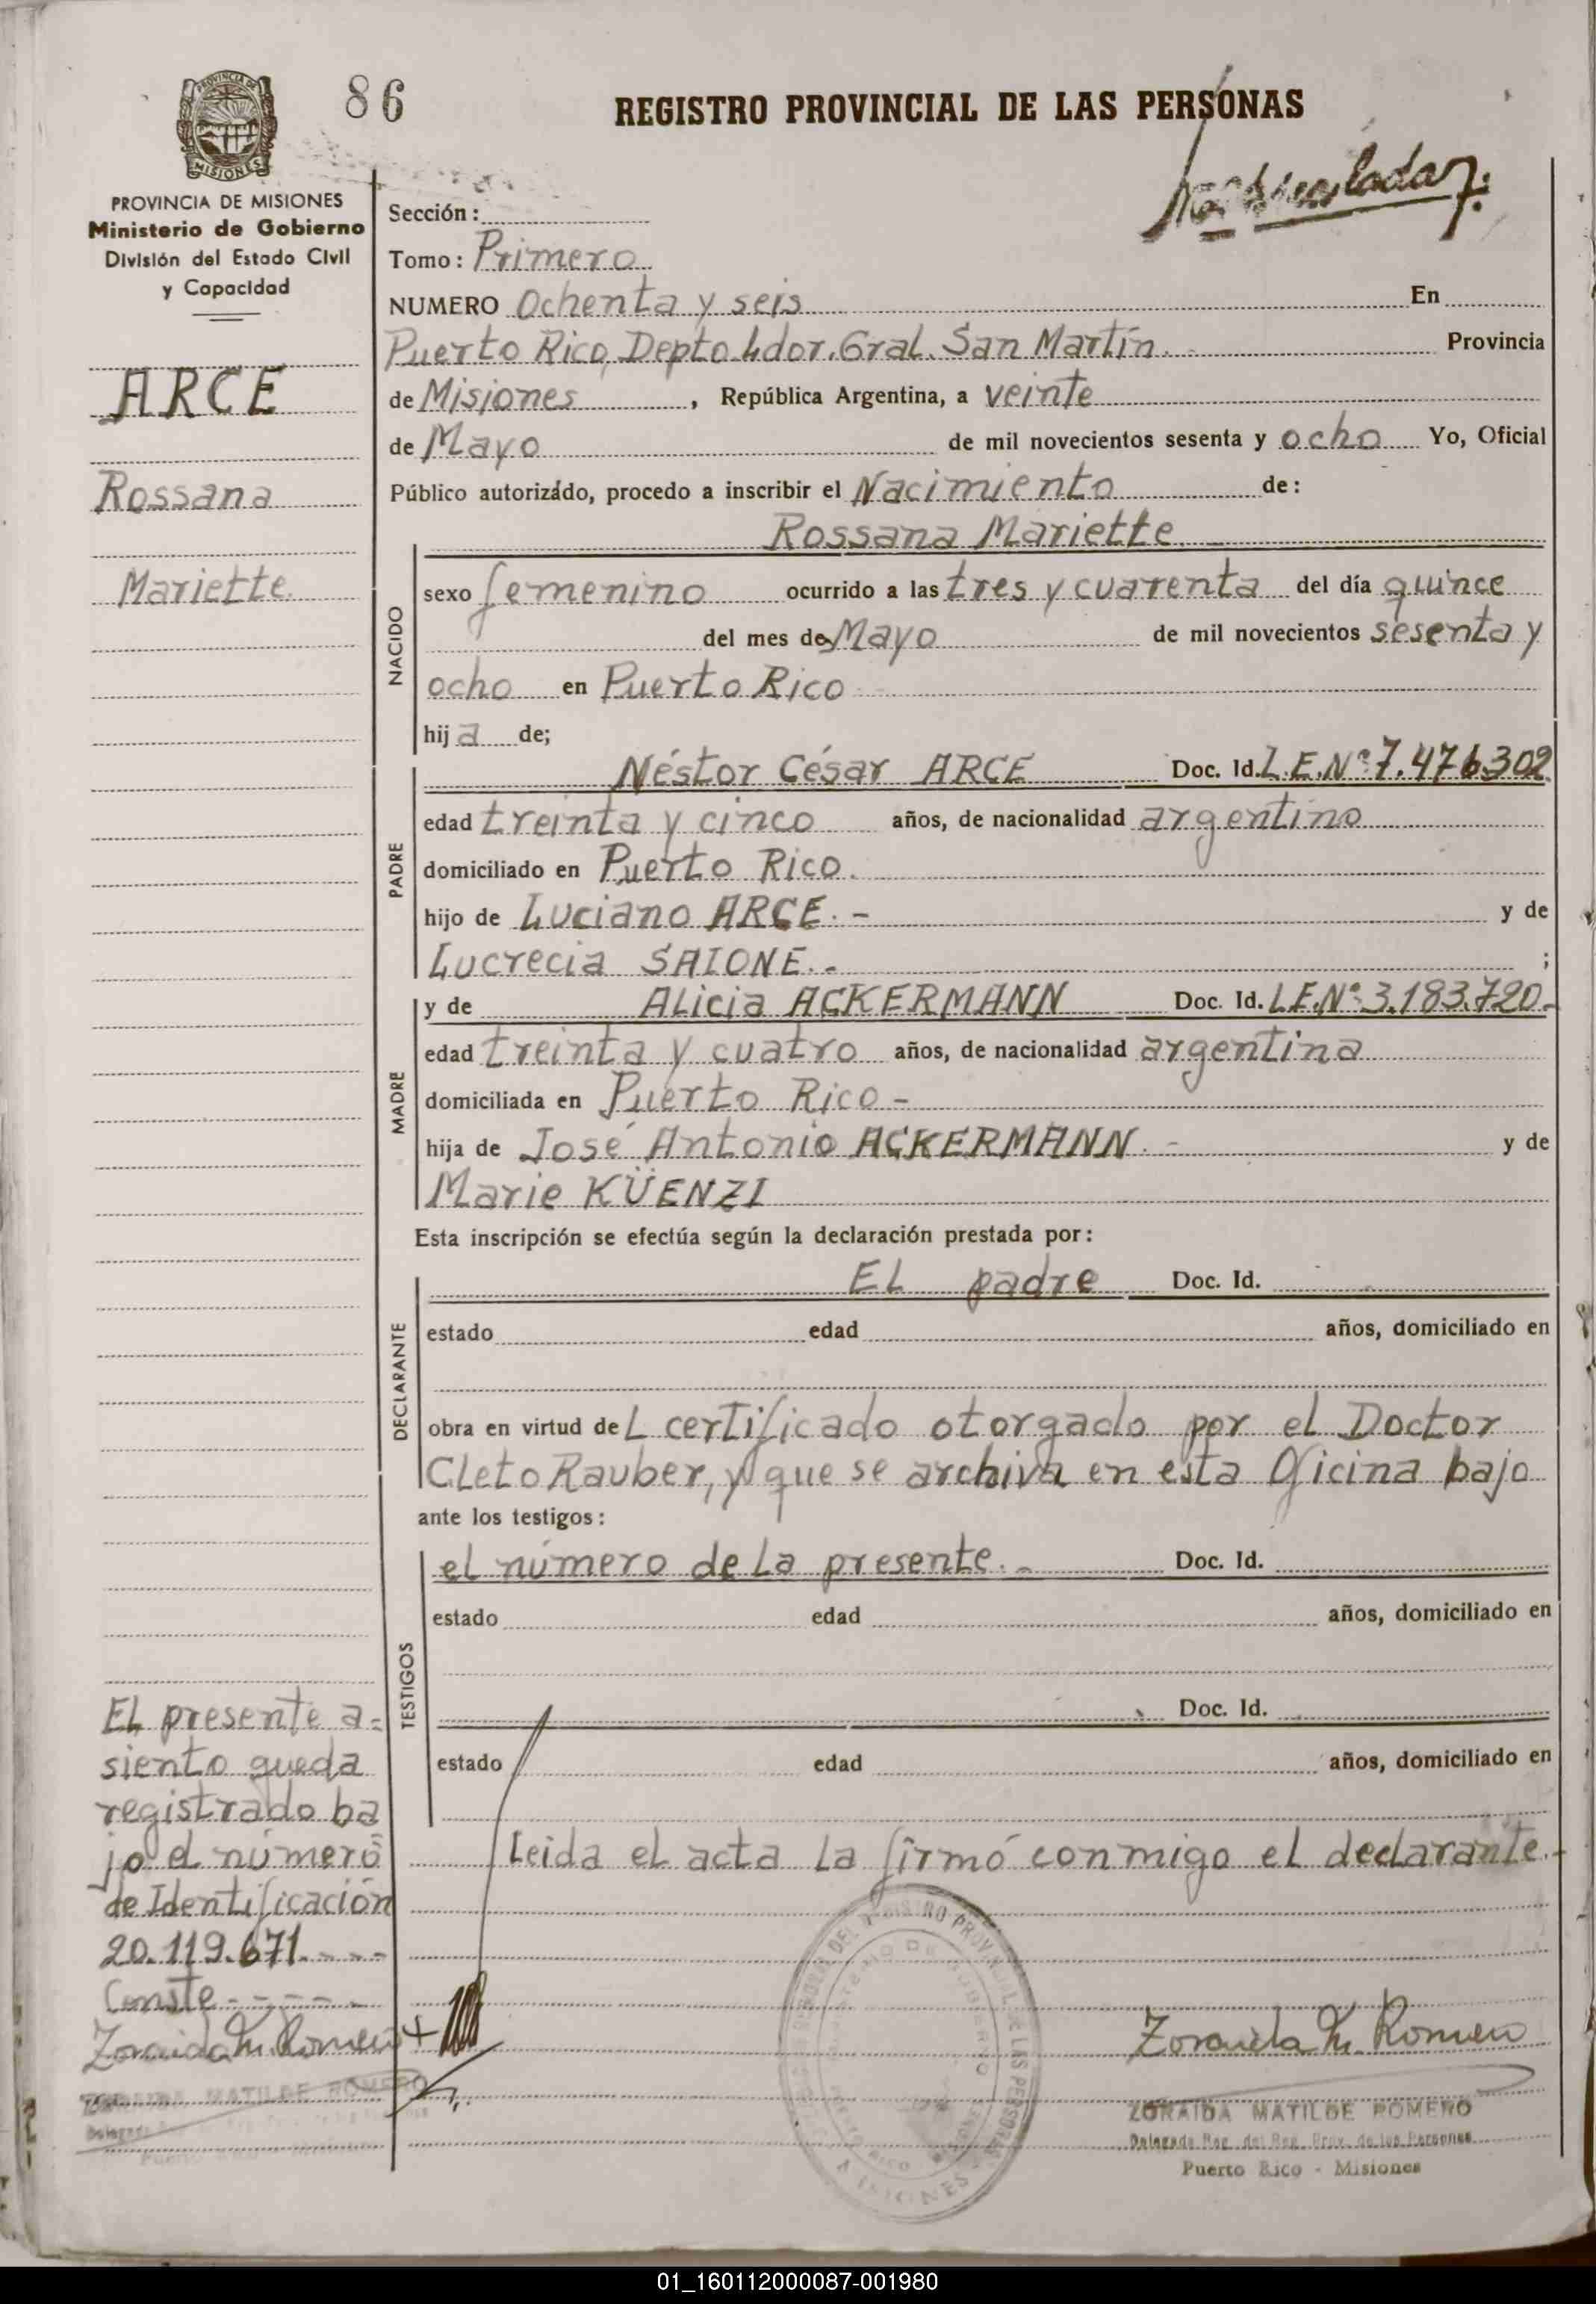 PROVINCIA DE
MISIONES
86
REGISTRO PROVINCIAL DE LAS PERSONAS
PROVINCIA DE MISIONES
Ministerio de Gobierno
División del Estado Civil
y Capacidad
ARCE
Rossana
Mariette.
Sección:
Tomo: Primero
NUMERO Ochenta y seis En
Puerto Rico, Depto Ldor. Gral. San Martín. - Provincia
de Misiones , República Argentina, a veinte
de Mayo de mil novecientos sesenta y ocho Yo, Oficial
Público autorizado, procedo a inscribir el Nacimiento de:
Rossana Mariette
NACIDO
sexo femenino ocurrido a las tres y cuarenta del día quince
del mes de Mayo de mil novecientos sesenta y
ocho en Puerto Rico
hija de;
PADRE
Néstor César ARCE Doc. Id. L.E.Nº 7.476.302
edad treinta y cinco años, de nacionalidad argentino
domiciliado en Puerto Rico.
hijo de Luciano ARCE. - y de
Lucrecia SAIONE. - ;
MADRE
y de Alicia ACKERMANN Doc. Id. L.E.Nº 3.183.720-
edad treinta y cuatro años, de nacionalidad argentina
domiciliada en Puerto Rico -
hija de José Antonio ACKERMANN. - y de
Marie KÜENZI
Esta inscripción se efectúa según la declaración prestada por:
DECLARANTE
EL padre Doc. Id.
estado edad años, domiciliado en
obra en virtud deL certificado otorgado por el Doctor
CLeto Rauber, y que se archiva en esta Oficina bajo
ante los testigos:
TESTIGOS
el número de La presente. - Doc. Id.
estado edad años, domiciliado en
Doc. Id.
estado edad años, domiciliado en
Leida el acta La firmó conmigo el declarante.-
EL presente a-
siento queda
registrado ba
jo el número
de Identificación
20.119.671.---
Conste-----
Zoraida M. Romero
ZORAIDA MATILDE ROMERO
Zoraida M. Romero
ZORAIDA MATILDE ROMERO
Delegada Reg. del Reg. Prov. de las Personas
Puerto Rico - Misiones
01_160112000087-001980